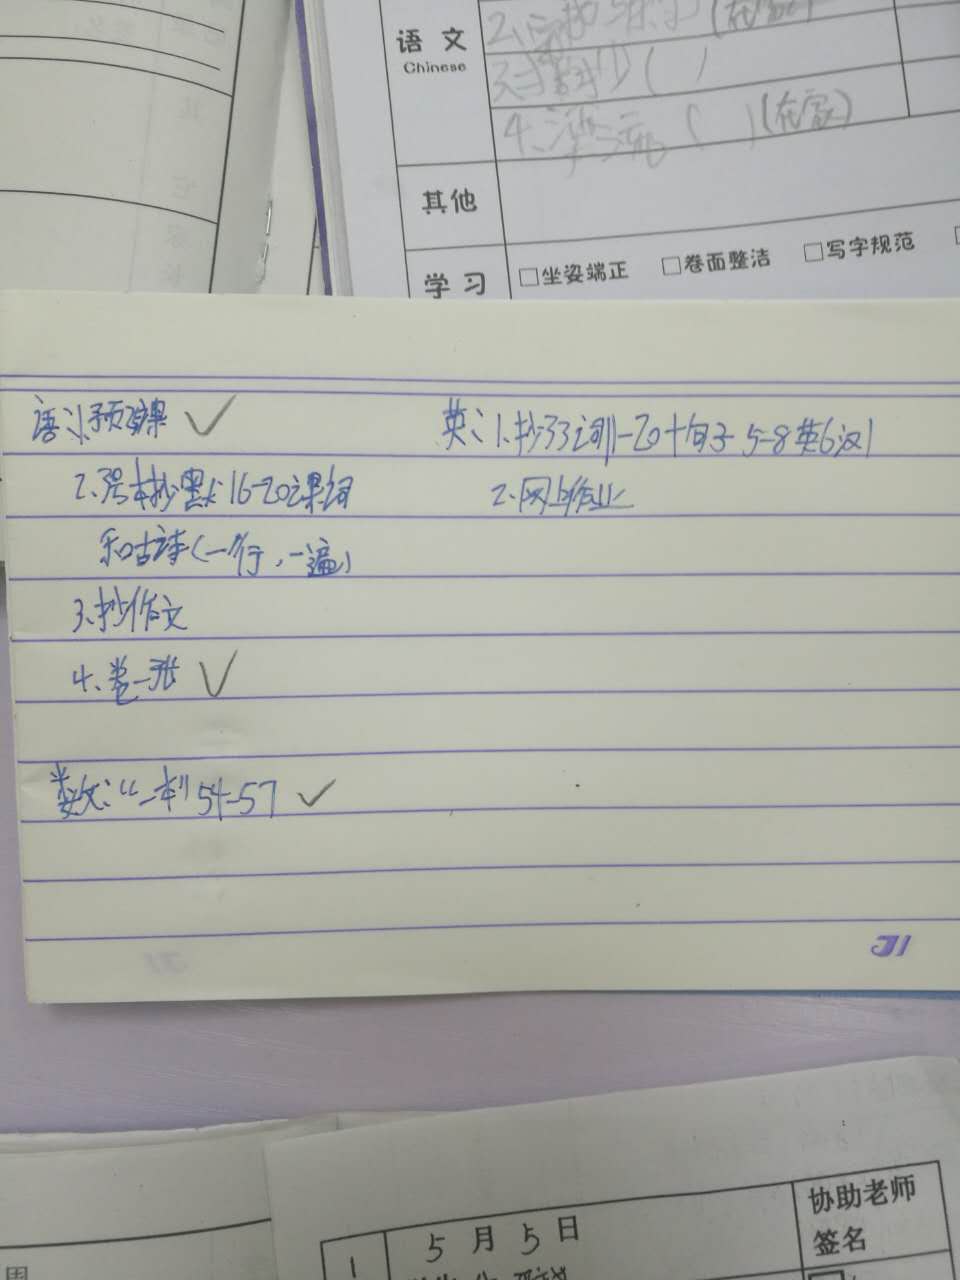 语文
Chinese
4、
(
)(在家)
其他
学习
□坐姿端正 □卷面整洁 □写字规范
语:1.预课 ✓
2、另本抄默16-20课词
和古诗(一行,一遍)
3、抄作文
4、卷一张 ✓
数:“一本”54-57 ✓
英:1、抄33词11-20+句子5-8英6汉1
2、网上作业
J1
1
5月5日
协助老师
签名
周